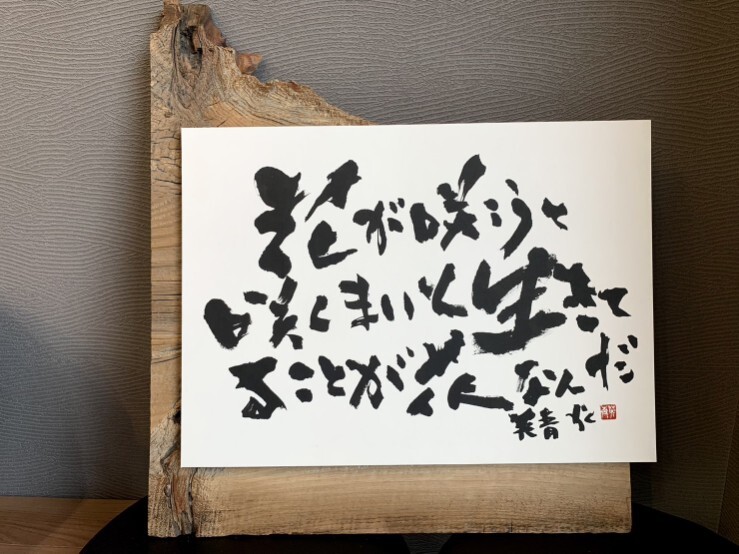 花が咲こうと
咲くまいと生きて
ることが花なんだ
青 かく